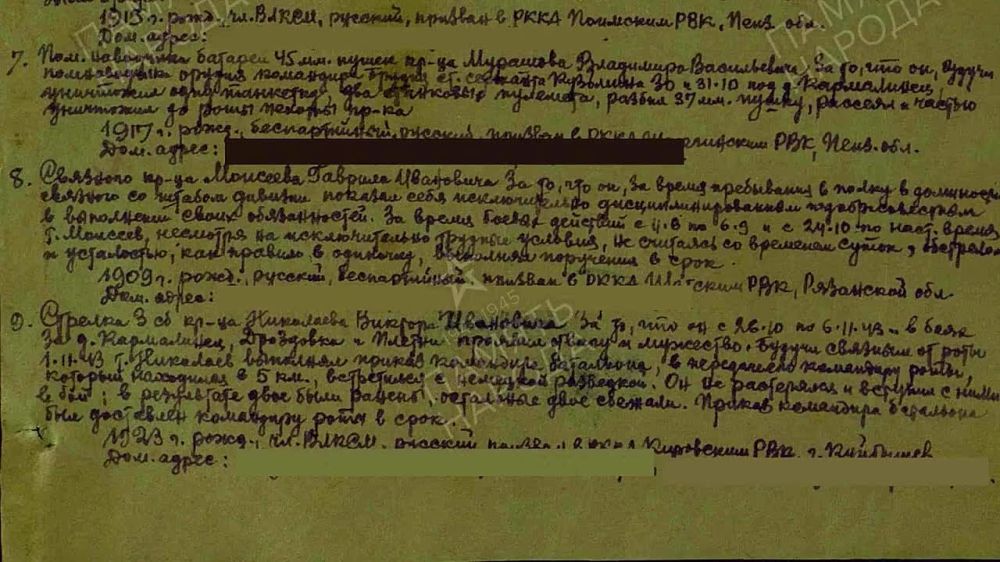 1913 г. рожд., чл. ВЛКСМ, русский, призван в РККА Поимским РВК, Пенз. обл.
Дом. адрес:
7. Пом. наводчика батареи 45 мм. пушек кр-ца Мурашова Владимира Васильевича За то, что он, будучи
помнаводчик орудия командира орудия ст. сержанта 30 и 31.10 под д. Кармалинец,
уничтожил одну танкетку, два станковых пулемета, разбил 37 мм. пушку, рассеял и частью
уничтожил до роты пехоты пр-ка
1917 г. рожд., беспартийный, русский, призван в РККА РВК, Пенз. обл.
Дом. адрес:
8. Связного кр-ца Моисеева Гаврила Ивановича За то, что он, за время пребывания в полку в должности
связного со штабом дивизии показал себя исключительно дисциплинированным и добросовестным
в выполнении своих обязанностей. За время боевых действий с 4.8 по 6.9 и с 24.10 по наст. время
т. Моисеев, несмотря на исключительно трудные условия, не считаясь со временем суток, обстрелом
и усталостью, как правило в одиночку, выполнял поручения в срок.
1909 г. рожд., русский, беспартийный, призван в РККА РВК, Рязанской обл.
Дом. адрес:
9. Стрелка 3 сб кр-ца Николаева Виктора Ивановича За то, что он с 26.10 по 6.11.43 г. в боях
за д. Кармалинец, Дроздовка и проявил отвагу и мужество. Будучи связным от роты
1.11.43 т. Николаев выполняя приказ командира батальона, о передаче его командиру роты,
который находился в 5 км., встретился с немецкой разведкой. Он не растерялся и вступил с ними
в бой; в результате двое были ранены, остальные двое сбежали. Приказ командира батальона
был доставлен командиру роты в срок.
1923 г. рожд., чл. ВЛКСМ, русский, призван в РККА Кировским РВК, г. Куйбышев
Дом. адрес:
ПАМЯТЬ
НАРОДА
1945